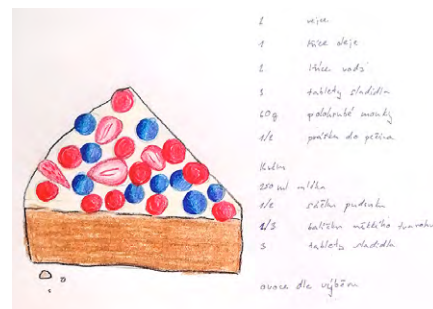 2 vejce
1 lžíce oleje
2 lžíce vody
3 tablety sladidla
60g polohrubé mouky
1/2 prášku do pečiva
Krém
250 ml mléka
1/2 sáčku pudinku
1/3 balíčku měkkého tvarohu
3 tablety sladidla
ovoce dle výběru